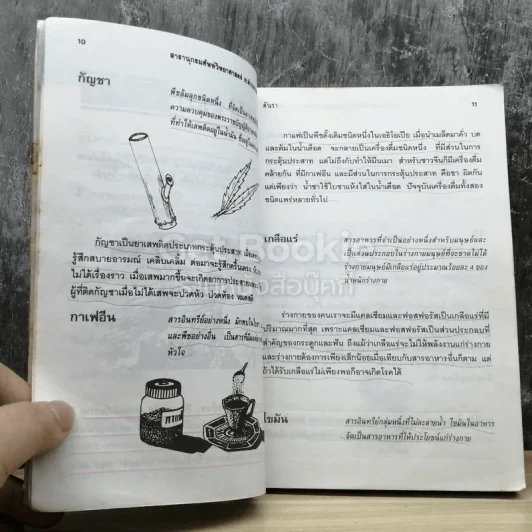 10
สารานุกรมศัพท์วิทยาศาสตร์
กัญชา
พืชล้มลุกชนิดหนึ่ง ที่จัดเป็นยา
ความควบคุมของพระราชบัญญัติ
ที่ทำให้เสพติดอยู่ในน้ำมัน
กัญชาเป็นยาเสพติดประเภทกระตุ้นประสาท
รู้สึกสบายอารมณ์ เคลิบเคลิ้ม ต่อมาจะรู้สึกตื่นเต้น
ไม่ได้เรื่องราว เมื่อเสพมากขึ้นจะเกิดอาการประสาท
ผู้ที่ติดกัญชาเมื่อไม่ได้เสพจะปวดหัว ปวดท้อง หมดสติ
กาเฟอีน
สารอินทรีย์อย่างหนึ่ง มักพบในใบ
และพืชอย่างอื่น เป็นสารที่มีผล
หัวใจ
กาแฟ
สีนรา
11
กาแฟเป็นพืชดั้งเดิมชนิดหนึ่งในเอธิโอเปีย เมื่อนำเมล็ดมาคั่ว บด
และต้มในน้ำเดือด จะกลายเป็นเครื่องดื่มชนิดหนึ่ง ที่มีส่วนในการ
กระตุ้นประสาท แต่ไม่ถึงกับทำให้มึนเมา สำหรับชาวจีนก็มีเครื่องดื่ม
คล้ายกัน ที่มีกาเฟอีน และมีส่วนในการกระตุ้นประสาท คือชา ผิดกัน
แต่เพียงว่า น้ำชาใช้ใบชาแห้งใส่ในน้ำเดือด ปัจจุบันเครื่องดื่มทั้งสอง
ชนิดแพร่หลายทั่วไป
เกลือแร่
สารอาหารที่จำเป็นอย่างหนึ่งสำหรับมนุษย์และ
เป็นส่วนประกอบในร่างกายมนุษย์ที่จะขาดไม่ได้
ร่างกายมนุษย์มีเกลือแร่อยู่ประมาณร้อยละ 4 ของ
น้ำหนักร่างกาย
ร่างกายของคนเราจะมีแคลเซียมและฟอสฟอรัสเป็นเกลือแร่ที่มี
ปริมาณมากที่สุด เพราะแคลเซียมและฟอสฟอรัสเป็นส่วนประกอบที่
สำคัญของกระดูกและฟัน ถึงแม้ว่าเกลือแร่จะไม่ให้พลังงานแก่ร่างกาย
และร่างกายต้องการเพียงเล็กน้อยเมื่อเทียบกับสารอาหารอื่นก็ตาม แต่
ถ้าได้รับเกลือแร่ไม่เพียงพอก็อาจเกิดโรคได้
ไขมัน
สารอินทรีย์กลุ่มหนึ่งที่ไม่ละลายน้ำ ไขมันในอาหาร
จัดเป็นสารอาหารที่ให้ประโยชน์แก่ร่างกาย